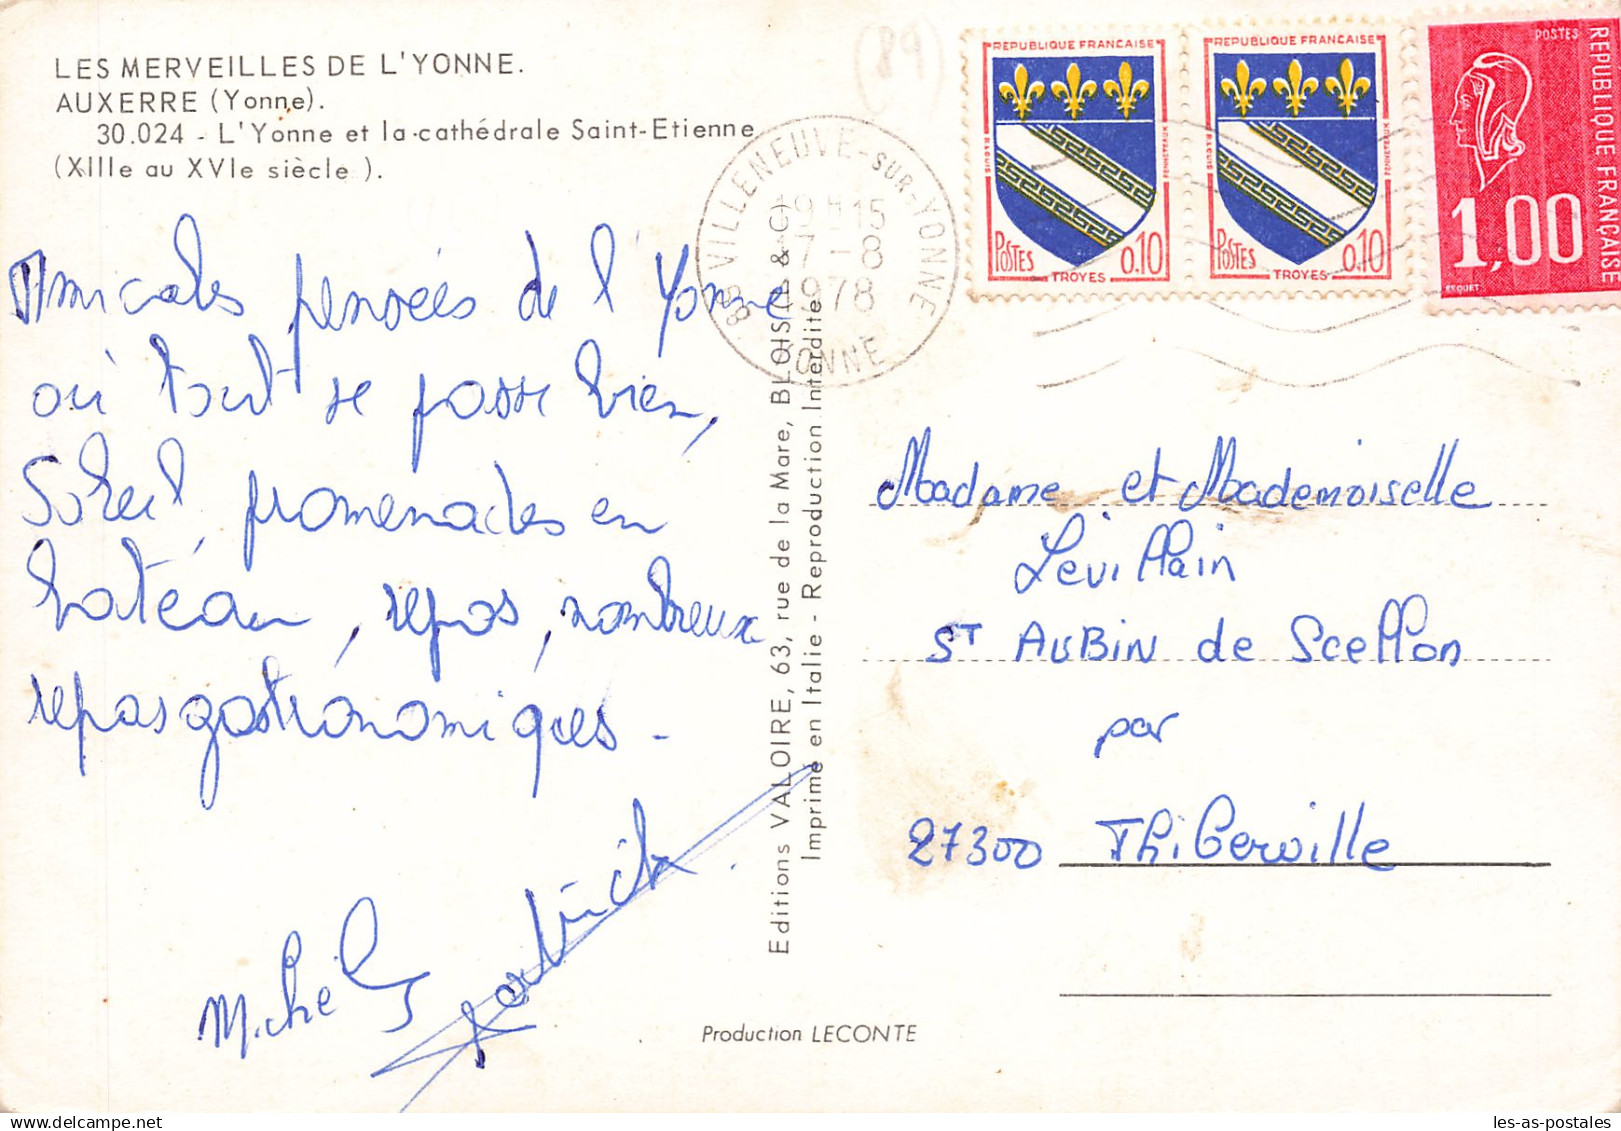 LES MERVEILLES DE L'YONNE.
AUXERRE (Yonne).
30.024 - L'Yonne et la cathédrale Saint-Etienne
(XIIIe au XVIe siècle ).
Amicales pensées de l'Yonne
où tout se passe bien,
Soleil, promenades en
bateau, repos, nombreux
repas gastronomiques.
Michel
Patrick
(89)
89 VILLENEUVE-SUR-YONNE
19H15
7-8
1978
YONNE
REPUBLIQUE FRANCAISE
POSTES
0.10
TROYES
REPUBLIQUE FRANCAISE
POSTES
0.10
TROYES
POSTES
REPUBLIQUE FRANÇAISE
1,00
BEQUET
Editions VALOIRE, 63, rue de la Mare, BLOIS & Cie
Imprimé en Italie - Reproduction Interdite
Madame et Mademoiselle
Levillain
ST AUBIN de Scellon
par
27300 Thiberville
Production LECONTE
les-as-postales